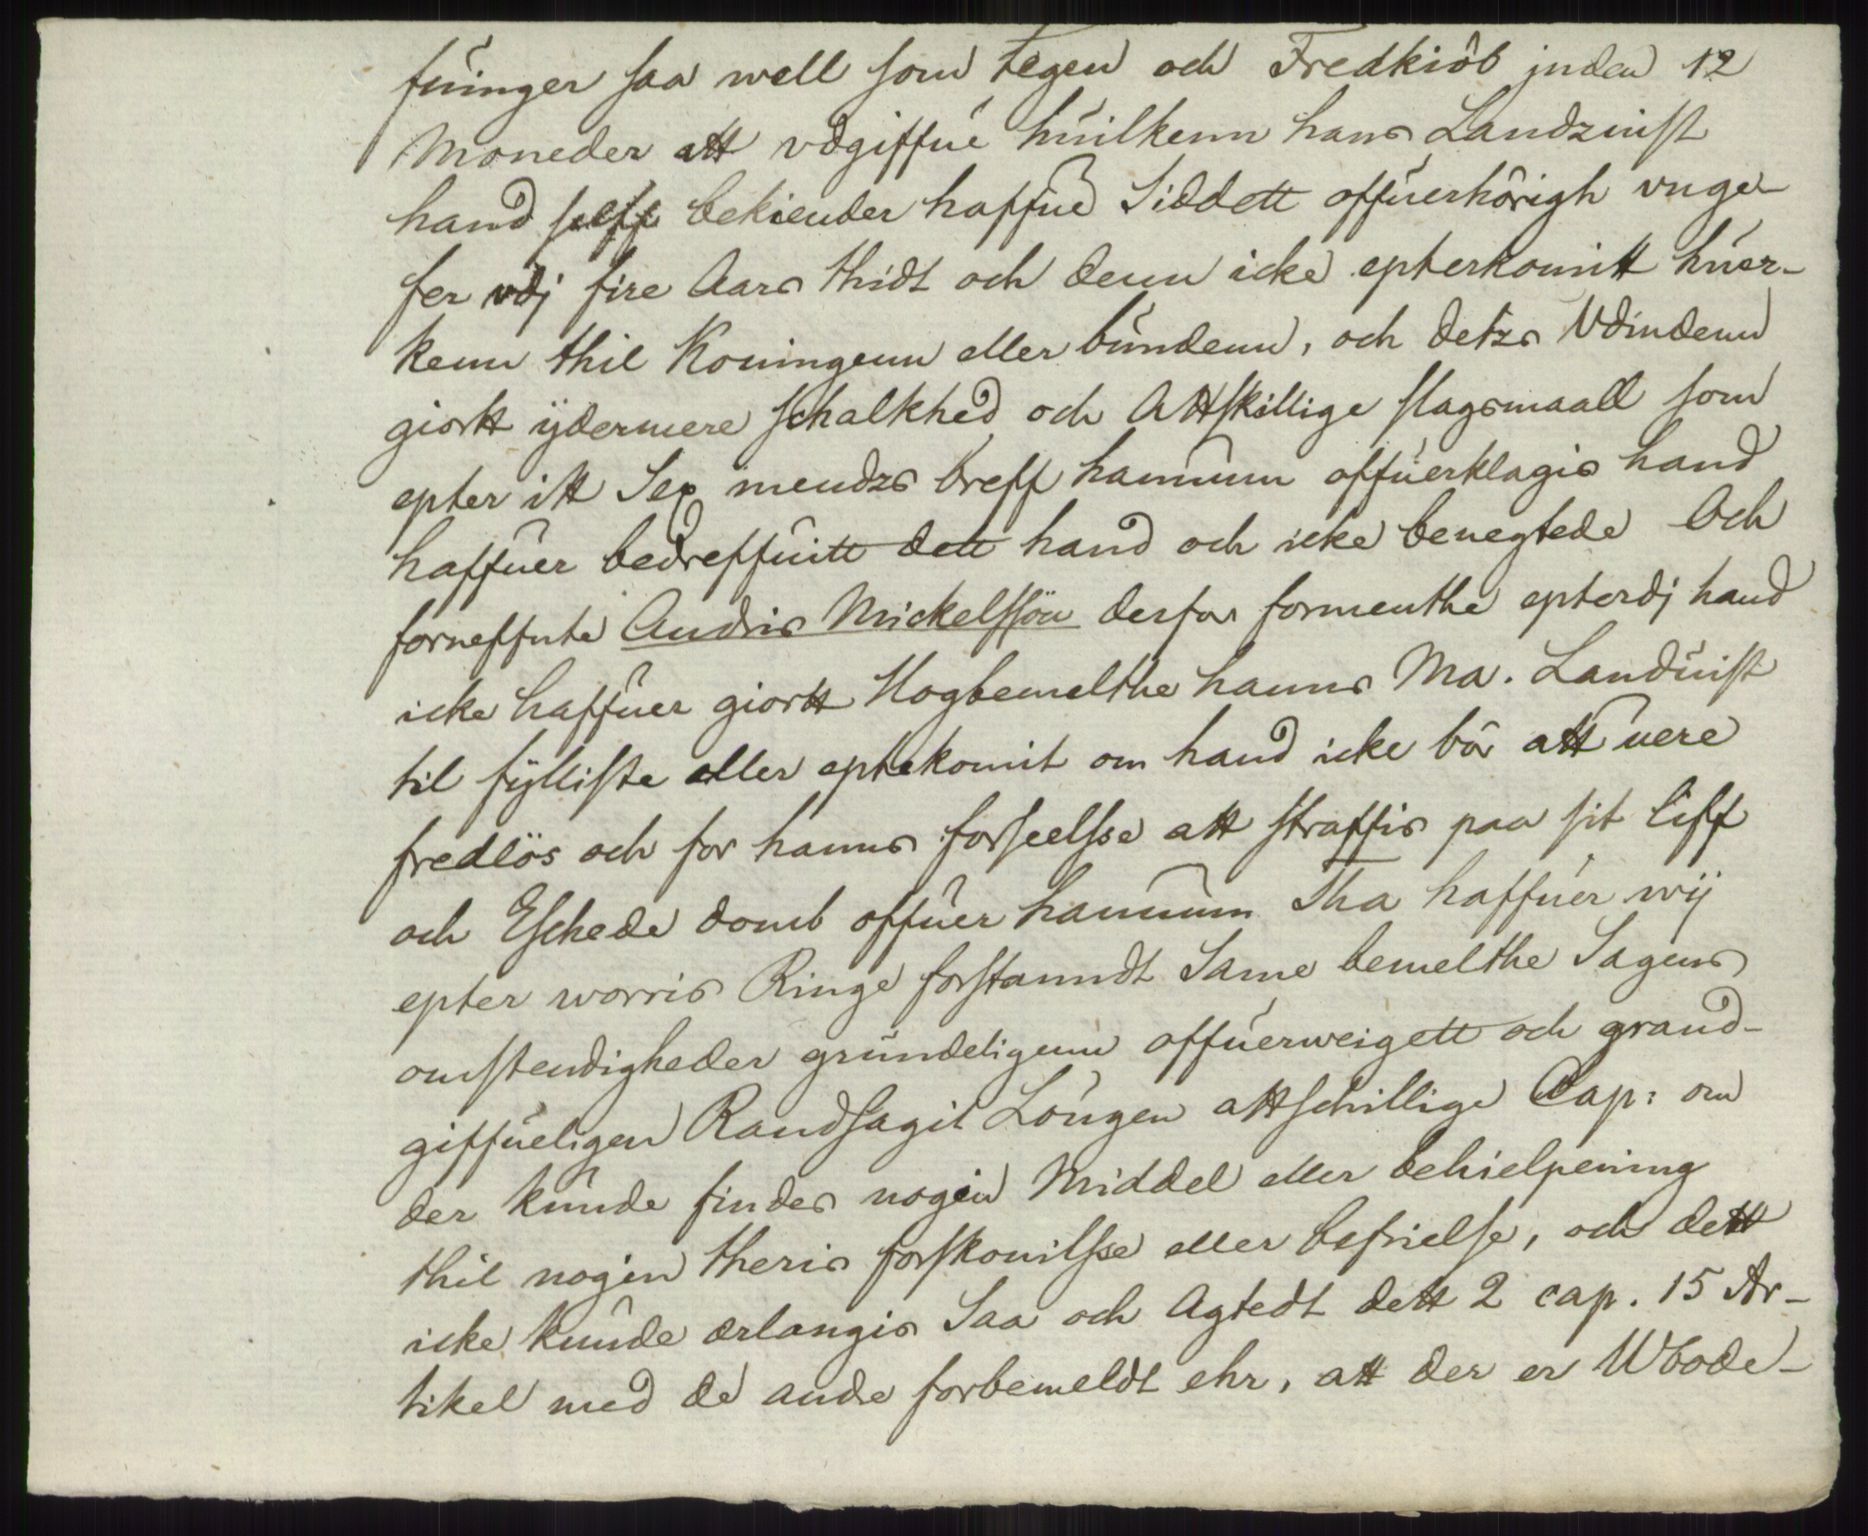 fuinger saa well som tegen och Fredkiöb jnden 12
Moneder att vdgiffue huilkenn hans Landzuist
hand self bekiender haffue Siddett offuerhörigh vnge-
fer vdj fire Aars thidt och denn icke epterkomitt huer-
kenn thil Koningenn eller bundenn, och detzs Vdindenn
giortt ÿdermere schalkhed och Attskillige slagsmaall som
epter itt Sex mendzs breff hannum offuerklagis hand
haffuer bedreffuitt dett hand och icke benegtede Och
forneffnte Andris Mickelssön derfor formenthe epterdj hand
icke haffuer giortt Hogbemelthe hanns Ma. Landuist
til fÿlliste eller eptekomit om hand icke bör att uere
fredlös och for hanns forseelsse att straffis paa sit liff
och Eschede domb offuer hannum Tha haffuer wij
epter worris Ringe forstanndt Same bemelthe Sagens
omstendigheder grundeligenn offuerweigett och grand-
giffueligen Randsagit Lougen attschillige Cap: om
der kunde findes nogen Middel eller behielpening
thil nogen theris forskonilsse eller befrielse, och dett
icke kunde erlangis Saa och Agtedt dett 2 cap. 15 Ar-
tikel med de andre forbemeldt ehr, att der er Wbode-